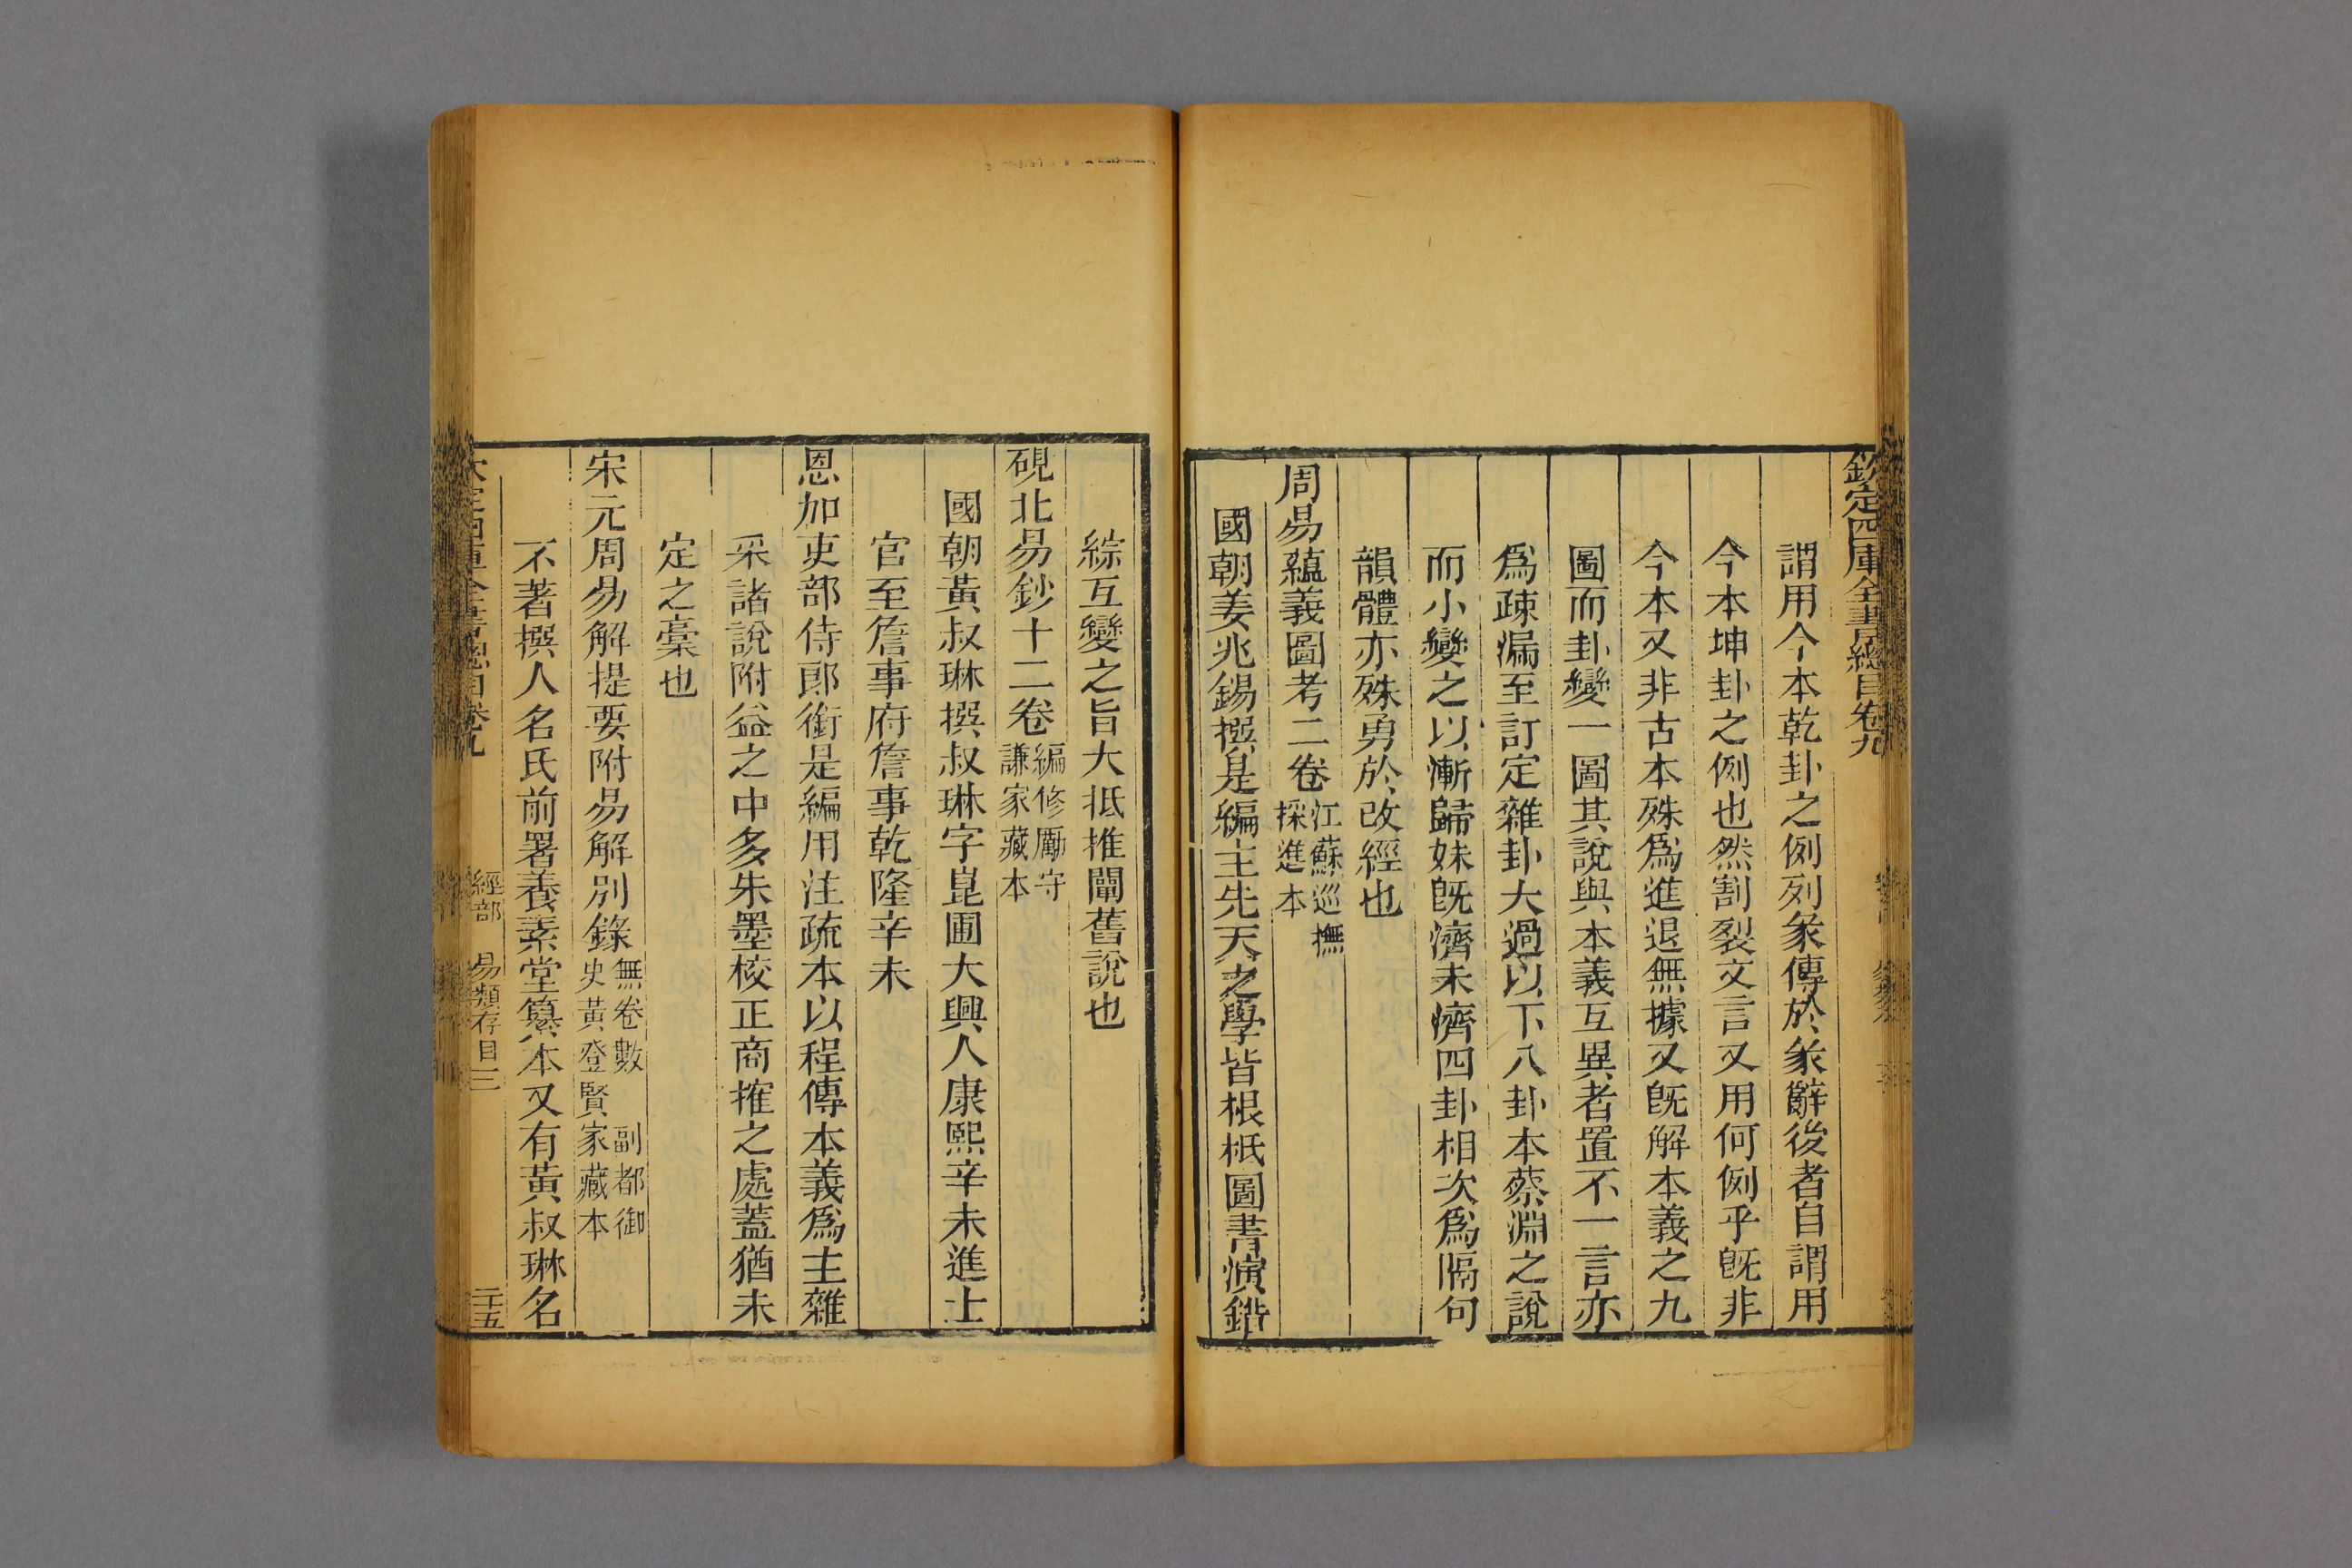 欽定四庫全書總目卷九
謂用今本乾卦之例列彖傳於彖辭後者自謂用
今本坤卦之例也然割裂文言又用何例乎旣非
今本又非古本殊爲進退無據又旣解本義之九
圖而卦變一圖其說與本義互異者置不一言亦
爲疎漏至訂定雜卦大過以下八卦本蔡淵之說
而小變之以漸歸妹旣濟未濟四卦相次爲隔句
韻體亦殊勇於改經也
周易蘊義圖考二卷江蘇巡撫採進本
國朝姜兆錫撰是編主先天之學皆根柢圖書演錯
綜互變之旨大抵推闡舊說也
硯北易鈔十二卷編修勵守謙家藏本
國朝黃叔琳撰叔琳字崑圃大興人康熙辛未進士
官至詹事府詹事乾隆辛未
恩加吏部侍郎銜是編用注疏本以程傳本義爲主雜
采諸說附益之中多朱墨校正商搉之處蓋猶未
定之藁也
宋元周易解提要附易解別錄無卷數 副都御史黃登賢家藏本
不著撰人名氏前署養素堂纂本又有黃叔琳名
欽定四庫全書總目卷九 經部 易類存目三 二十五